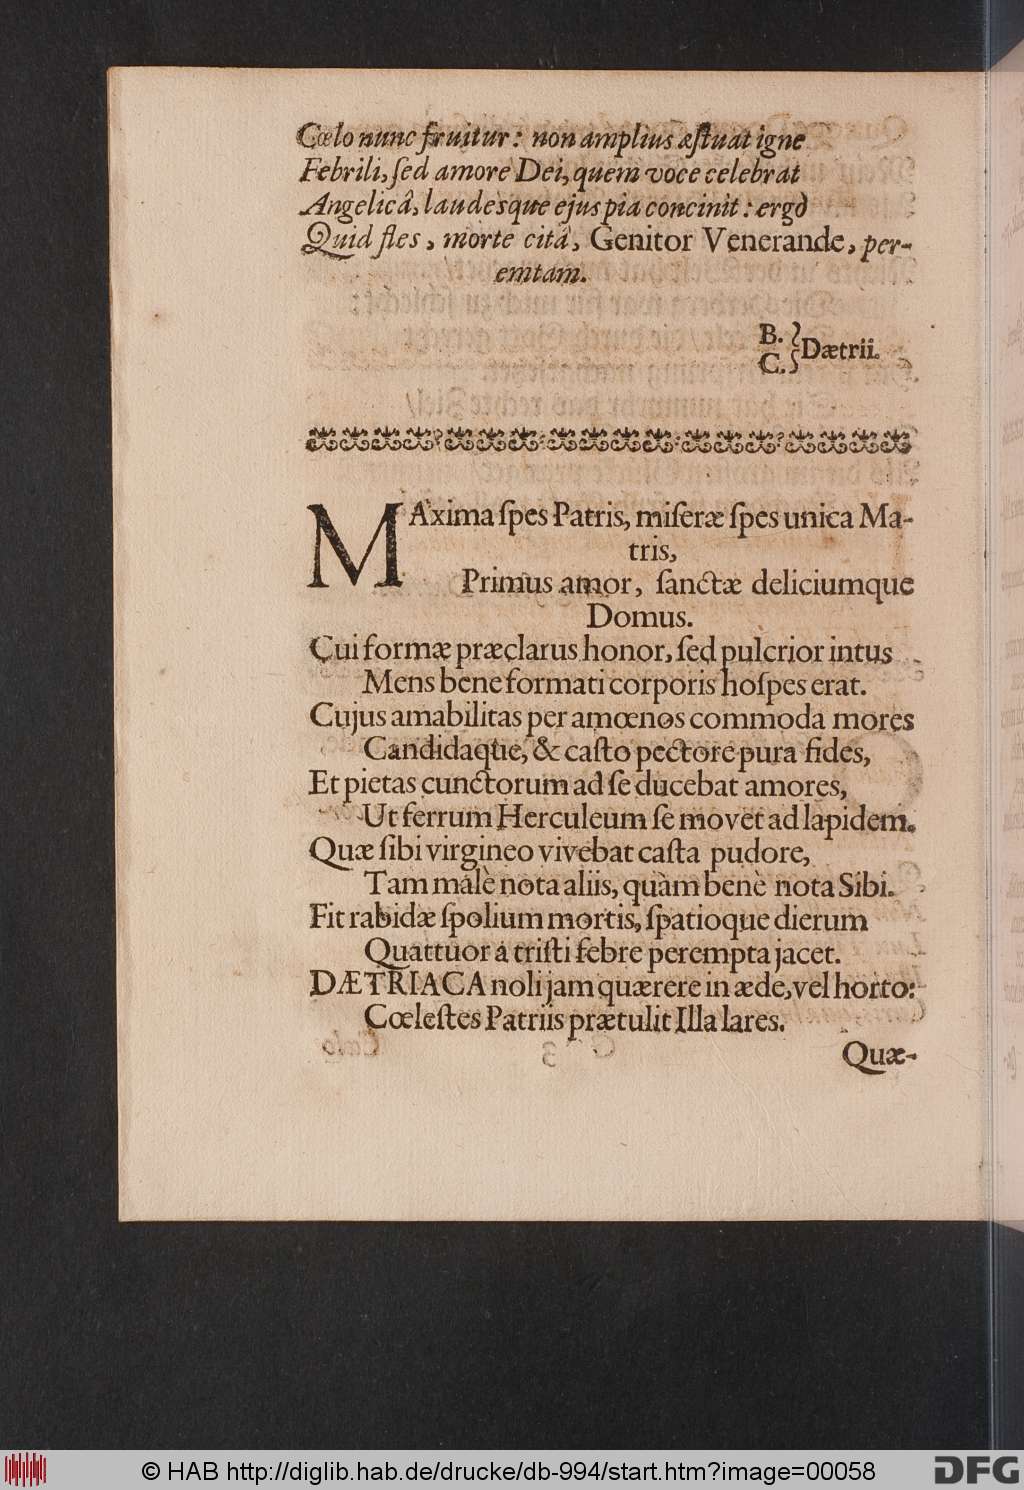 Cœlo nunc fruitur: non amplius æſtuat igne
Febrili, ſed amore Dei, quem voce celebrat
Angelicâ, laudesque ejus pia concinit: ergò
Quid fles, morte citâ, Genitor Venerande, per-
emtam.
B.
C. } Dætrii.
MAxima ſpes Patris, miſeræ ſpes unica Ma-
tris,
Primus amor, ſanctæ deliciumque
Domus.
Cui formæ præclarus honor, ſed pulcrior intus
Mens bene formati corporis hoſpes erat.
Cujus amabilitas per amœnos commoda mores
Candidaque, & caſto pectore pura fides,
Et pietas cunctorum ad ſe ducebat amores,
Ut ferrum Herculeum ſe movet ad lapidem.
Quæ ſibi virgineo vivebat caſta pudore,
Tam malè nota aliis, quàm benè nota Sibi.
Fit rabidæ ſpolium mortis, ſpatioque dierum
Quattuor à triſti febre perempta jacet.
DÆTRIACA noli jam quærere in æde, vel horto:
Cœleſtes Patriis prætulit Illa lares.
Quæ-
© HAB http://diglib.hab.de/drucke/db-994/start.htm?image=00058
DFG